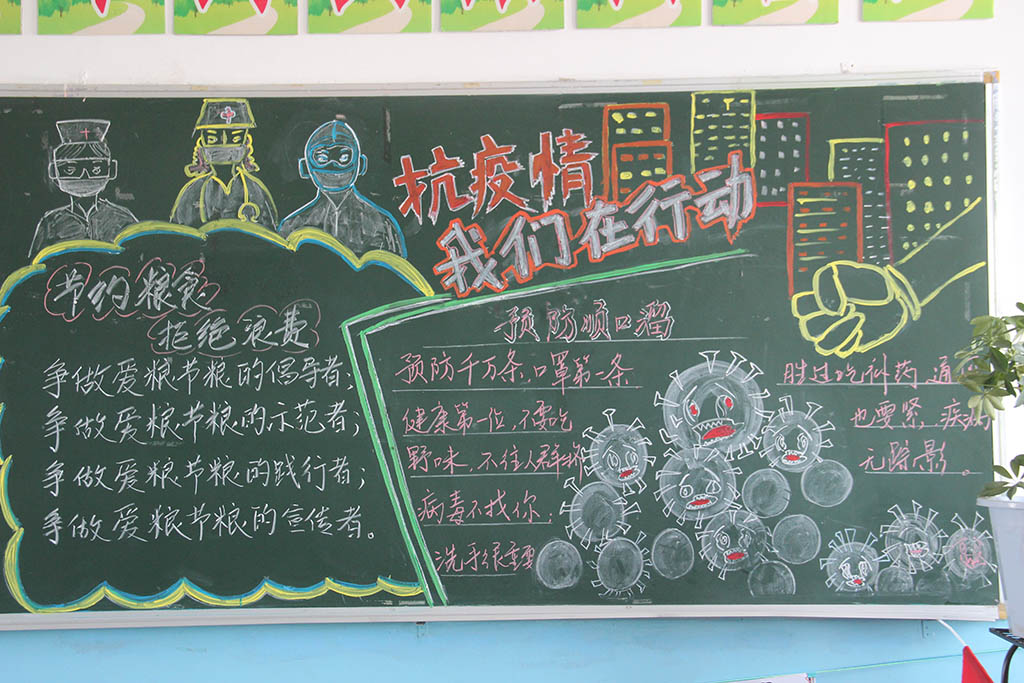 抗疫情
我们在行动
节约粮食
拒绝浪费
争做爱粮节粮的倡导者；
争做爱粮节粮的示范者；
争做爱粮节粮的践行者；
争做爱粮节粮的宣传者。
预防顺口溜
预防千万条，口罩第一条
健康第一位，不要吃
野味，不往人群
病毒不找你；
洗手很重要
胜过吃补药，通
也要紧，疾病
无踪影。